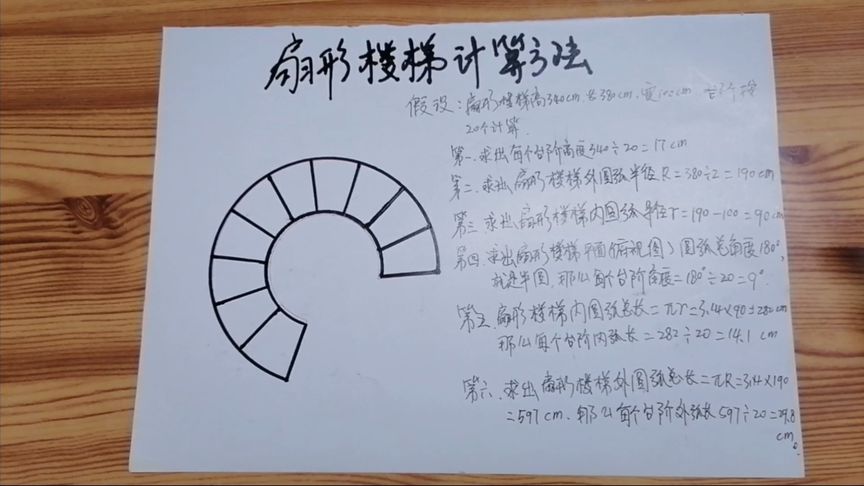 扇形楼梯计算方法
假设:扇形楼梯高340cm.长380cm.宽100cm.台阶按
20个计算.
第一.求出每个台阶高度340÷20=17cm
第二.求出扇形楼梯外圆弧半径R=380÷2=190cm
第三.求出扇形楼梯内圆弧半径r=190-100=90cm
第四.求出扇形楼梯平面(俯视图)圆弧总角度180°,
就是半圆.那么每个台阶角度=180°÷20=9°.
第五.扇形楼梯内圆弧总长=πr=3.14×90=282cm
那么每个台阶内弧长=282÷20=14.1cm
第六.求出扇形楼梯外圆弧总长=πR=3.14×190
=597cm.那么每个台阶外弧长597÷20=29.8
cm。